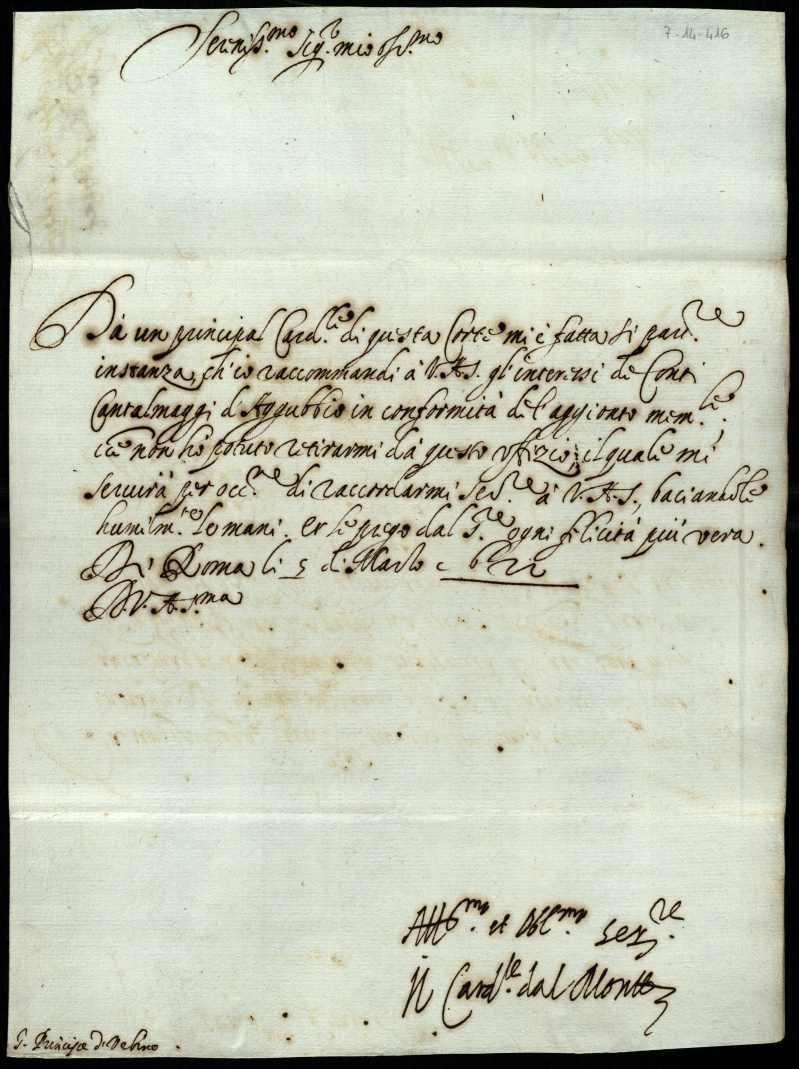 7-14-416
Sereniss.mo Sig.r mio oss.mo
Da un principal Card.le di questa Corte mi è fatta si part.re
instanza, ch'io raccommandi à V.A.S. gl'interessi de Conti
Cantalmaggi d'Aggubbio in conformità del'aggionto mem.le,
che non hò potuto retirarmi da questo uffizio, il quale mi
servirà per occ.ne di raccordarmi ser.re à V.A.S., baciandole
humilm.te le mani. et le prego dal S.re ogni felicità più vera.
Di Roma li 5 di Marzo
D V. A. S.ma
Aff.mo et Obl.mo Ser.re
Il Card.le dal Monte
S. Principe d'Urbino